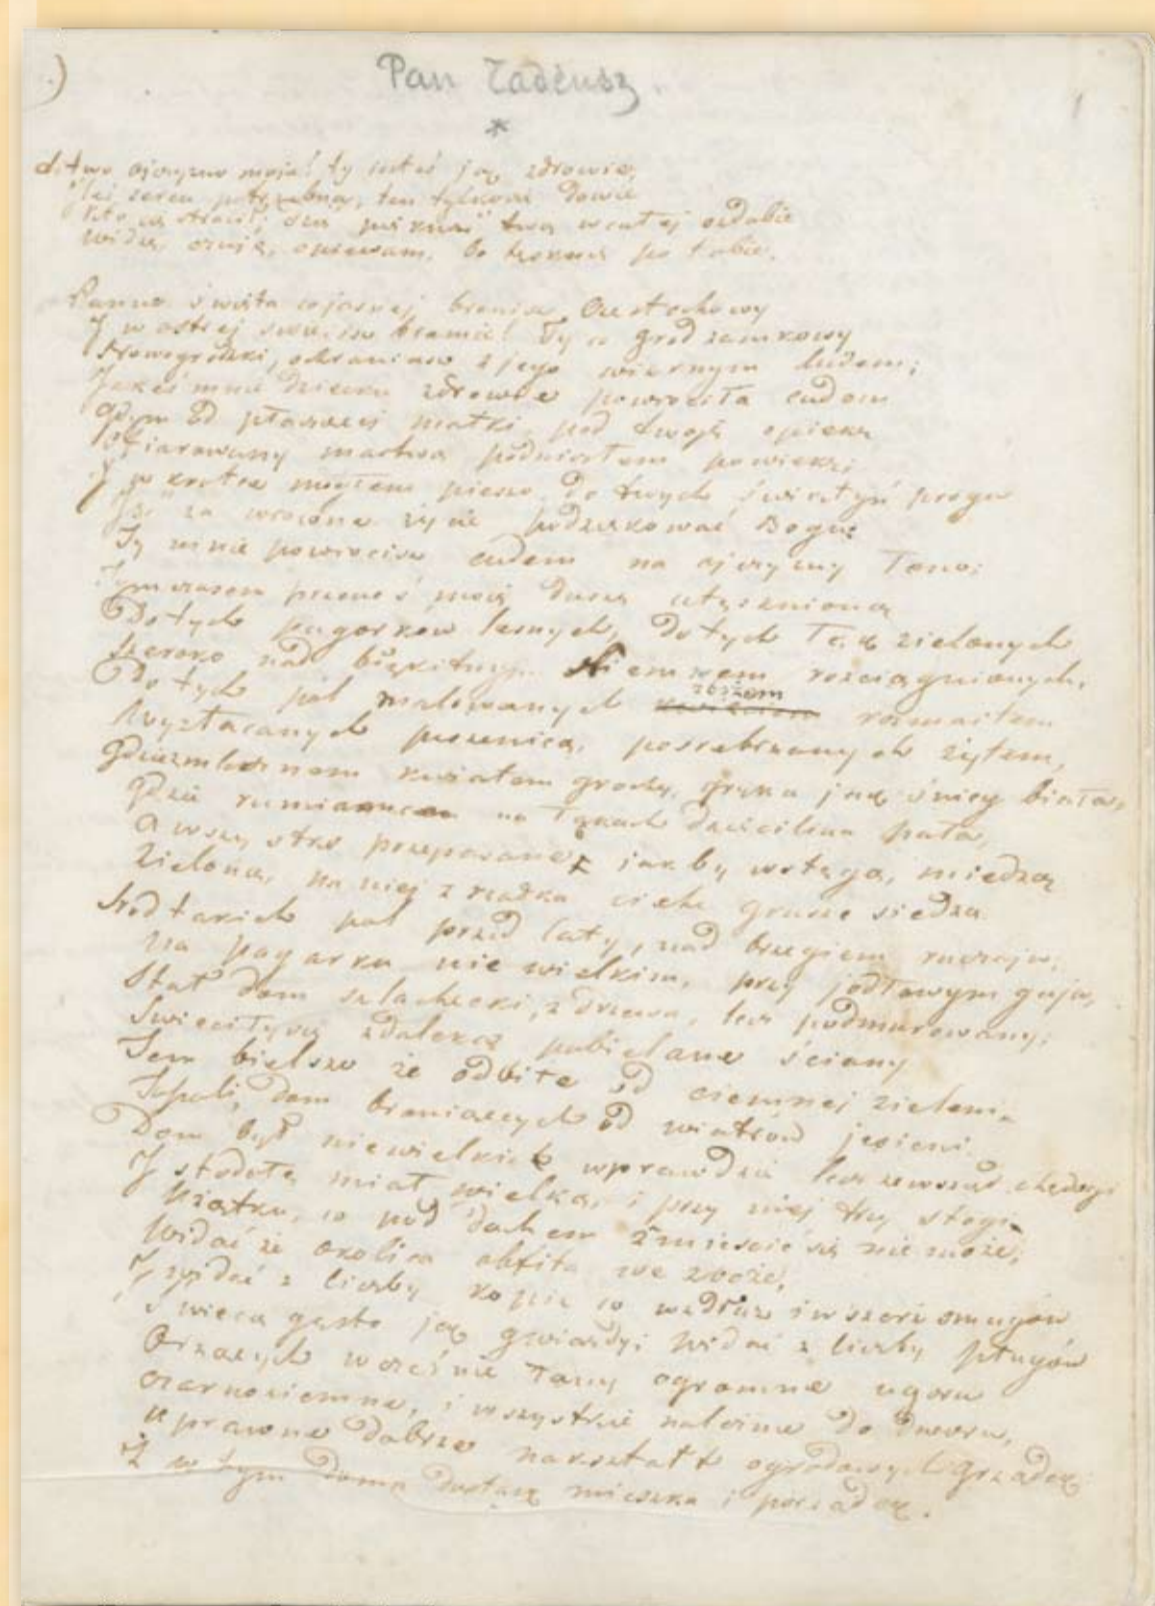 Pan Tadéusz.
*
Litwo ojczyzno moja! ty jesteś jak zdrowie,
Ileć cenić potrzebna, ten tylko się dowie
Kto cię stracił; dziś piękność twą w całej ozdobie
Widzę, czuję, opiewam, bo tęsknię po tobie.
Panno święta co jasnej bronisz Częstochowy
I w ostrej świecisz bramie! Ty co gród zamkowy
Nowogródzki, ochraniasz z jego wiernym ludem;
Jakeś mnie dziecko zdrowie powróciła cudem
Gdym od płaczącej matki, pod twoją opiekę
Ofiarowany martwą podniosłem powiekę;
I w krótce mogłem pieszo do twych świątyń progu
Iść za wrócone życie podziękować Bogu;
Ty mnie powrócisz cudem na ojczyzny łono;
Tymczasem przenoś moją duszę utęsknioną
Do tych pagórków leśnych, do tych łąk zielonych
Szeroko nad błękitnym Niemnem rozciągnionych,
Do tych pól malowanych zbożem rozmaitem
Wyzłacanych pszenicą, posrebrzanych żytem,
Gdzie kwiatem gryka jak śnieg biała,
Gdzie na łąkach dzięcielina pała,
A wszystko przepasane jakby wstęgą, miedzą
Zieloną, na niej z rzadka ciche grusze siedzą.
Śród takich pól przed laty, nad brzegiem ruczaju,
Na pagórku niewielkim, przy jodłowym gaju,
Stał dom szlachecki, z drzewa, lecz podmurowany;
Świeciły się zdaleka pobielane ściany
Tem bielsze że odbite od ciemnej zieleni
Topoli, dom broniących od wiatrów jesieni.
Dom był niewielki wprawdzie lecz zewsząd chędogi
I stodołę miał wielką, i przy niej trzy stogi
Użątku, co pod dachem zmieścić się nie może;
Widać że okolica obfita we zboże,
I widać z liczby kopic co wzdłuż i wszerz smugów
Świecą gęsto jak gwiazdy; widać z liczby pługów
Orzących wcześnie łany ogromne ugoru
Czarnoziemne, i wszystkie należne do dworu,
Uprawne dobrze nakształt ogrodowych grządek
Że w tym domu dostatek mieszka i porządek.